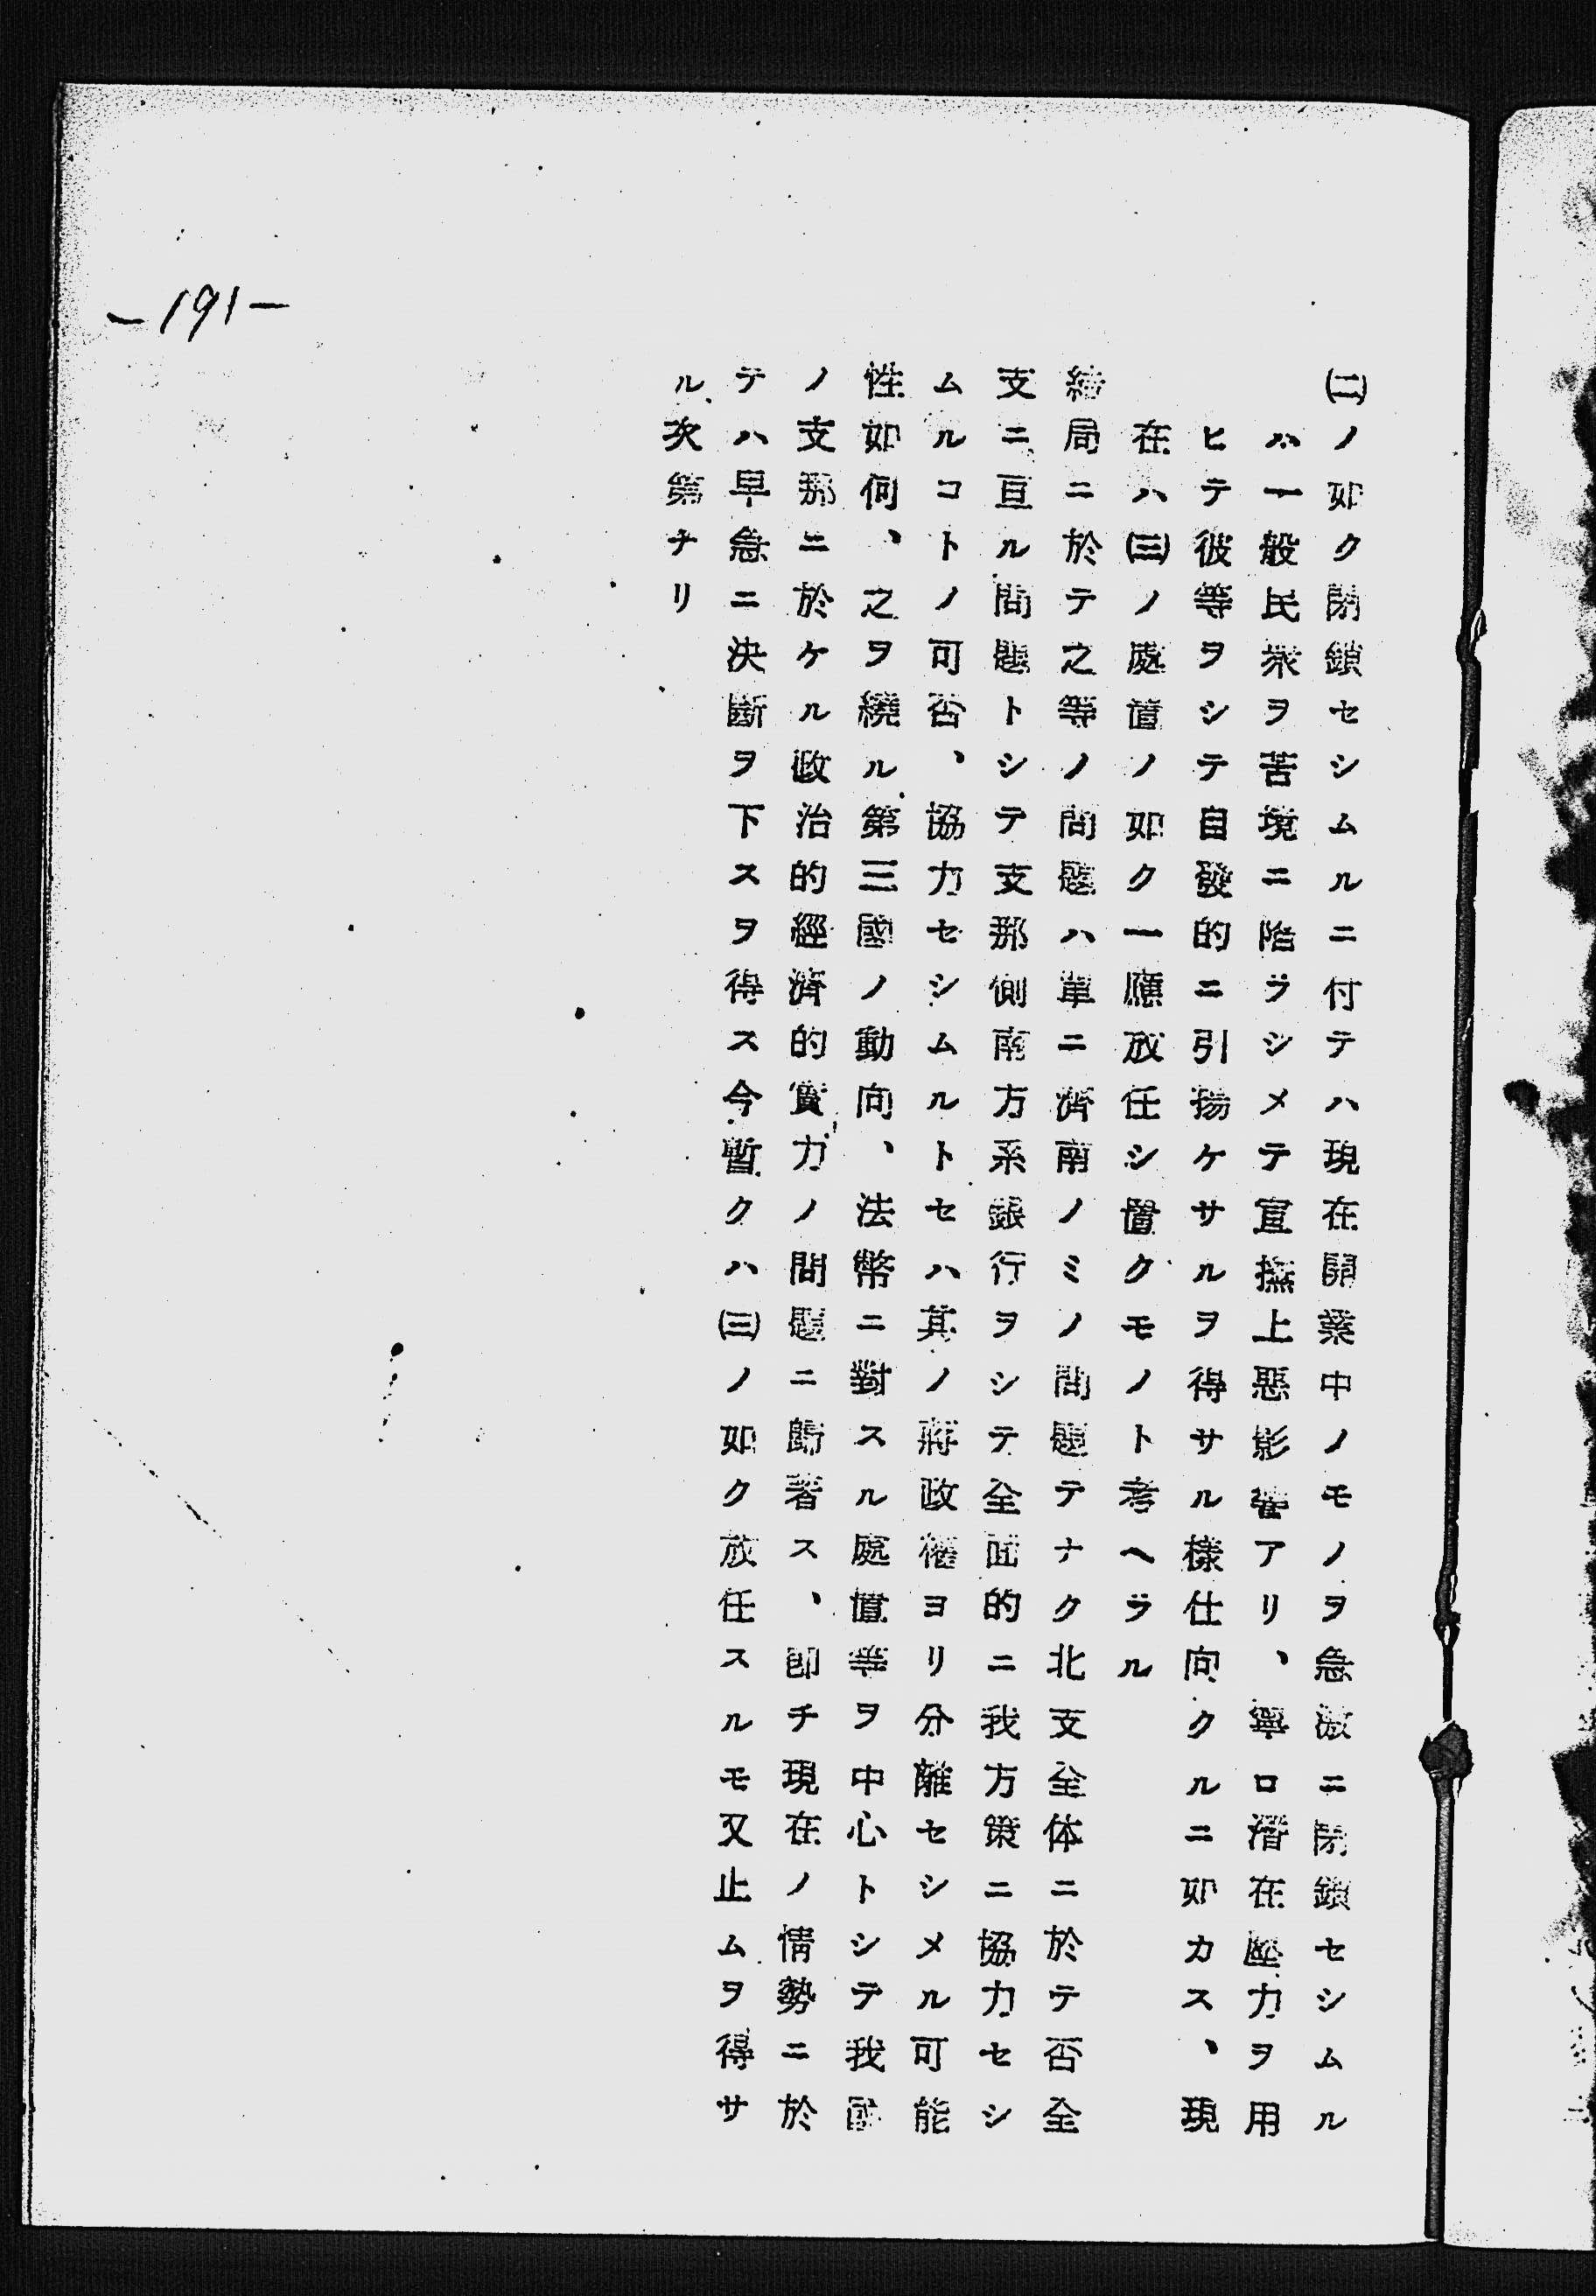 ㈡ノ如ク閉鎖セシムルニ付テハ現在開業中ノモノヲ急激ニ閉鎖セシムル
ハ一般民衆ヲ苦境ニ陷ラシメテ宣撫上惡影響アリ、寧ロ潛在壓力ヲ用
ヒテ彼等ヲシテ自發的ニ引揚ケサルヲ得サル樣仕向クルニ如カス、現
在ハ㈢ノ處置ノ如ク一應放任シ置クモノト考ヘラル
結局ニ於テ之等ノ問題ハ單ニ濟南ノミノ問題テナク北支全体ニ於テ否全
支ニ亘ル問題トシテ支那側南方系銀行ヲシテ全面的ニ我方策ニ協力セシ
ムルコトノ可否、協力セシムルトセハ其ノ蔣政權ヨリ分離セシメル可能
性如何、之ヲ繞ル第三國ノ動向、法幣ニ對スル處置等ヲ中心トシテ我國
ノ支那ニ於ケル政治的經濟的實力ノ問題ニ歸着ス、卽チ現在ノ情勢ニ於
テハ早急ニ決斷ヲ下スヲ得ス今暫クハ㈢ノ如ク放任スルモ又止ムヲ得サ
ル次第ナリ
-191-